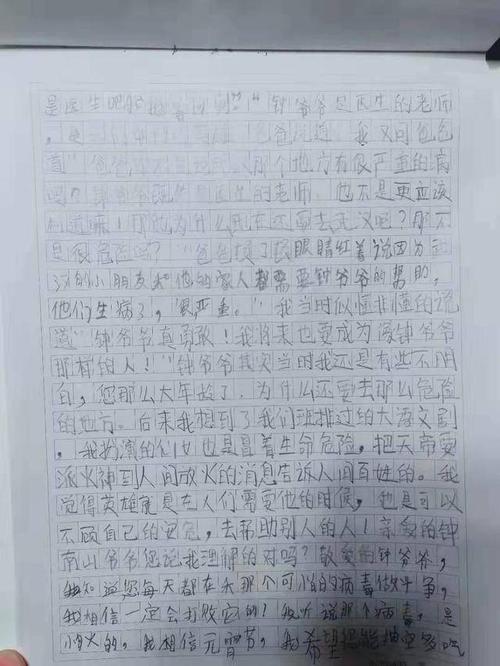 是医生吧？"钟爷爷是医生的老师
，是 爸爸说道。我又问爸爸
道"爸爸 那个地方有很严重的病
吗？钟爷爷既然是医生的老师，也不是更应该
知道嘛！那他为什么现在还要去武汉呢？那不
是很危险吗？"爸爸 眼睛红着说因为武
汉的小朋友和他的家人都需要钟爷爷的帮助，
他们生病了，很严重。"我当时似懂非懂的说
道"钟爷爷真勇敢！我将来也要成为像钟爷爷
那样的人！"钟爷爷其实当时我还是有些不明
白，您那么大年龄了，为什么还要去那么危险
的地方。后来我想到了我们班排过的大语文剧
，我扮演的 也是冒着生命危险，把天帝要
派火神到人间放火的消息告诉人间百姓的。我
觉得英雄就是在人们需要他的时候，也是可以
不顾自己的安危，去帮助别人的人！亲爱的钟
南山爷爷您说我理解的对吗？敬爱的钟爷爷，
我知道您每天都在和那个可怕的病毒做斗争，
我相信一定会打败它的！我听说那个病毒，是
怕火的，我相信元宵节，我希望您能抽空多吃